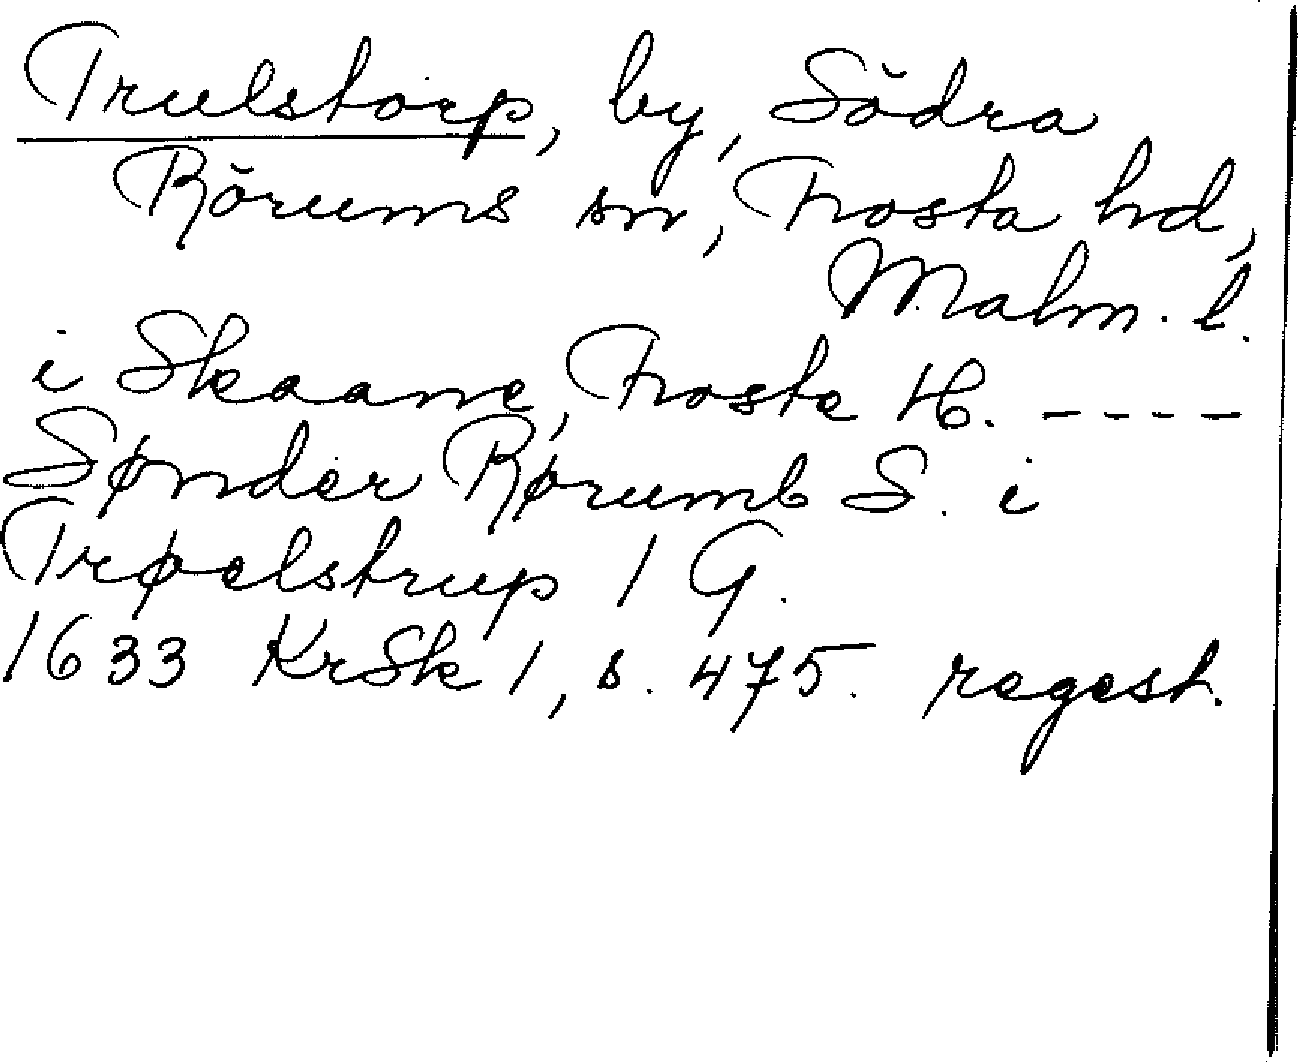 Trulstorp, by, Södra
Rörums sn, Frosta hd,
Malm. l.
i Skaane, Froste H. ----
Sønder Rørumb S. i
Trøelstrup 1 G.
1633 KrSk 1, s. 475. regest.